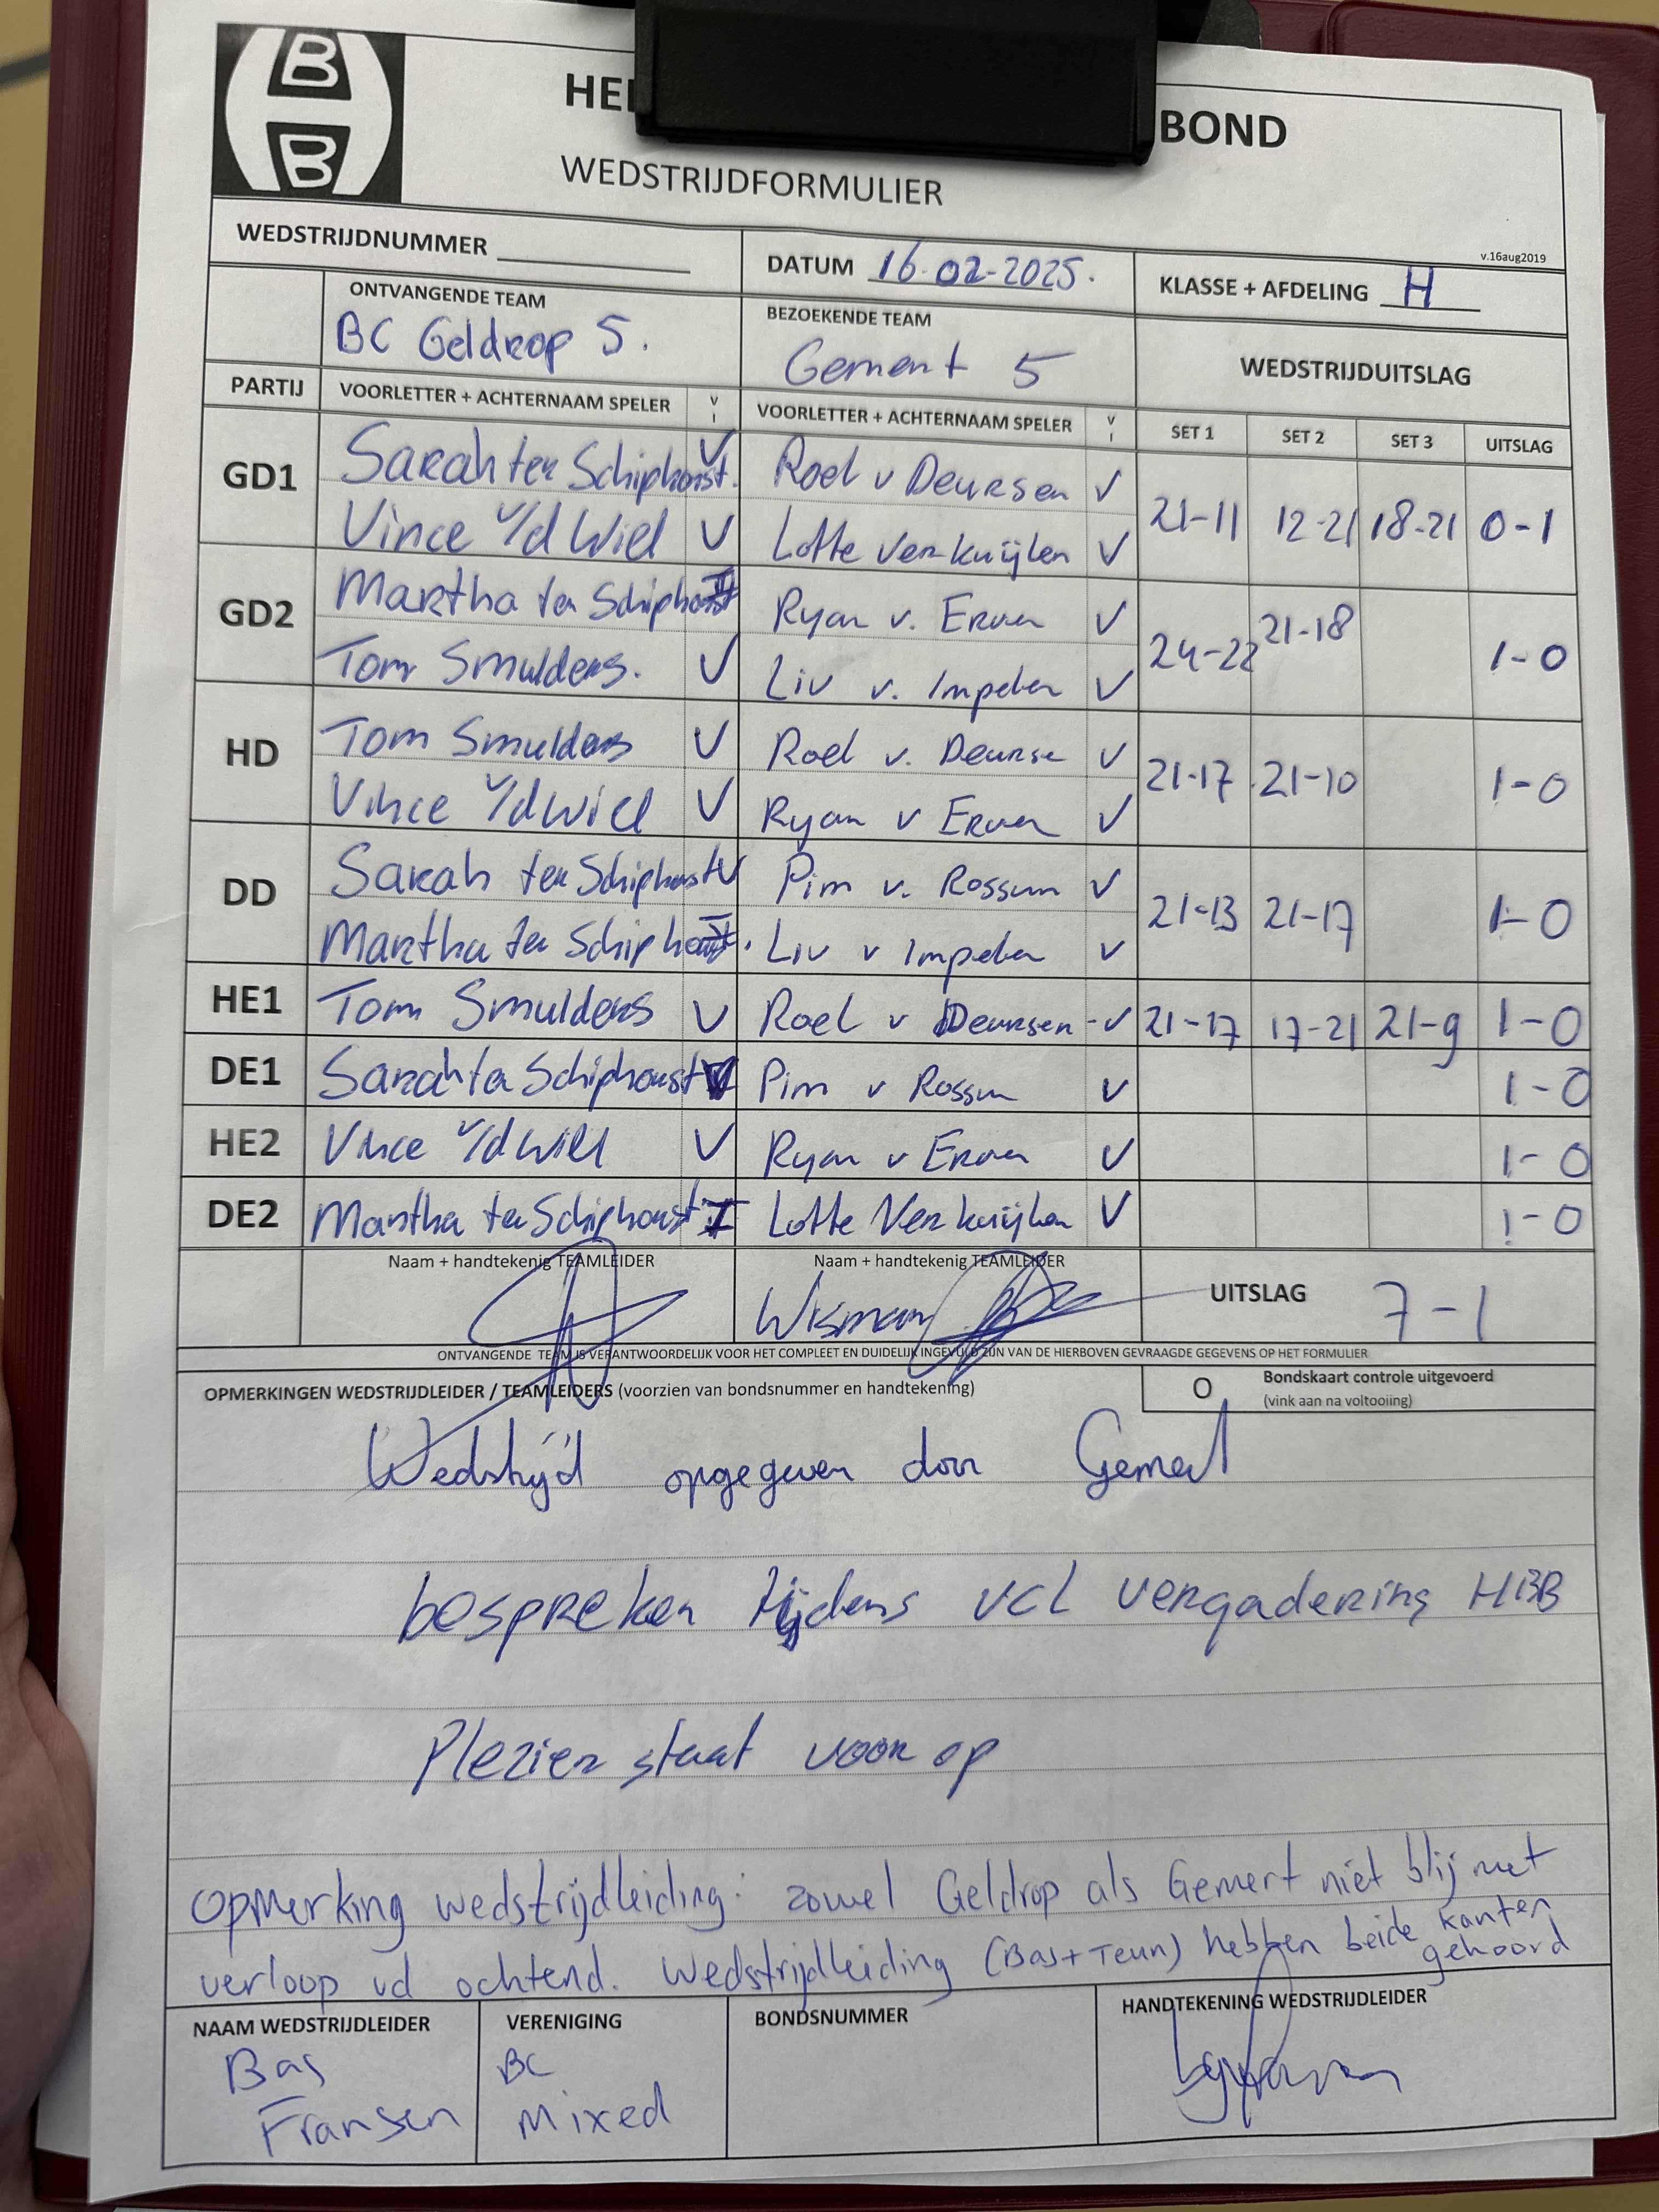 B
B
HE BOND
WEDSTRIJDFORMULIER
v.16aug2019
WEDSTRIJDNUMMER
DATUM 16-02-2025.
KLASSE + AFDELING H
ONTVANGENDE TEAM
BC Geldrop 5.
BEZOEKENDE TEAM
Gemert 5
WEDSTRIJDUITSLAG
PARTIJ VOORLETTER + ACHTERNAAM SPELER V I VOORLETTER + ACHTERNAAM SPELER V I SET 1 SET 2 SET 3 UITSLAG
GD1 Sarah ter Schiphorst. V Roel v Deursen V
Vince v/d Wiel V Lotte Verkuijlen V 21-11 12-21 18-21 0-1
GD2 Martha ter Schiphorst I Ryan v. Erven V
Tom Smulders. V Liv v. Impelen V 24-22 21-18 1-0
HD Tom Smulders V Roel v. Deurse V
Vince v/d Wiel V Ryan v Erven V 21-17 21-10 1-0
DD Sarah ter Schiphorst V Pim v. Rossum V
Martha ter Schiphorst I. Liv v Impelen V 21-13 21-17 1-0
HE1 Tom Smulders V Roel v Deursen - V 21-17 17-21 21-9 1-0
DE1 Sarah ter Schiphorst V Pim v Rossum V 1-0
HE2 Vince v/d Wiel V Ryan v Erven V 1-0
DE2 Martha ter Schiphorst I Lotte Verkuijlen V 1-0
Naam + handtekenig TEAMLEIDER
Naam + handtekenig TEAMLEIDER
Wisman
UITSLAG 7-1
ONTVANGENDE TEAM IS VERANTWOORDELIJK VOOR HET COMPLEET EN DUIDELIJK INGEVULD ZIJN VAN DE HIERBOVEN GEVRAAGDE GEGEVENS OP HET FORMULIER
OPMERKINGEN WEDSTRIJDLEIDER / TEAMLEIDERS (voorzien van bondsnummer en handtekening)
O Bondskaart controle uitgevoerd
(vink aan na voltooiing)
Wedstrijd opgegeven door Gemert
bespreken tijdens VCL vergadering HBB
Plezier staat voor op
Opmerking wedstrijdleiding: zowel Geldrop als Gemert niet blij met
verloop vd ochtend. Wedstrijdleiding (Bas+Teun) hebben beide kanten
gehoord
NAAM WEDSTRIJDLEIDER
Bas
Fransen
VERENIGING
BC
Mixed
BONDSNUMMER
HANDTEKENING WEDSTRIJDLEIDER